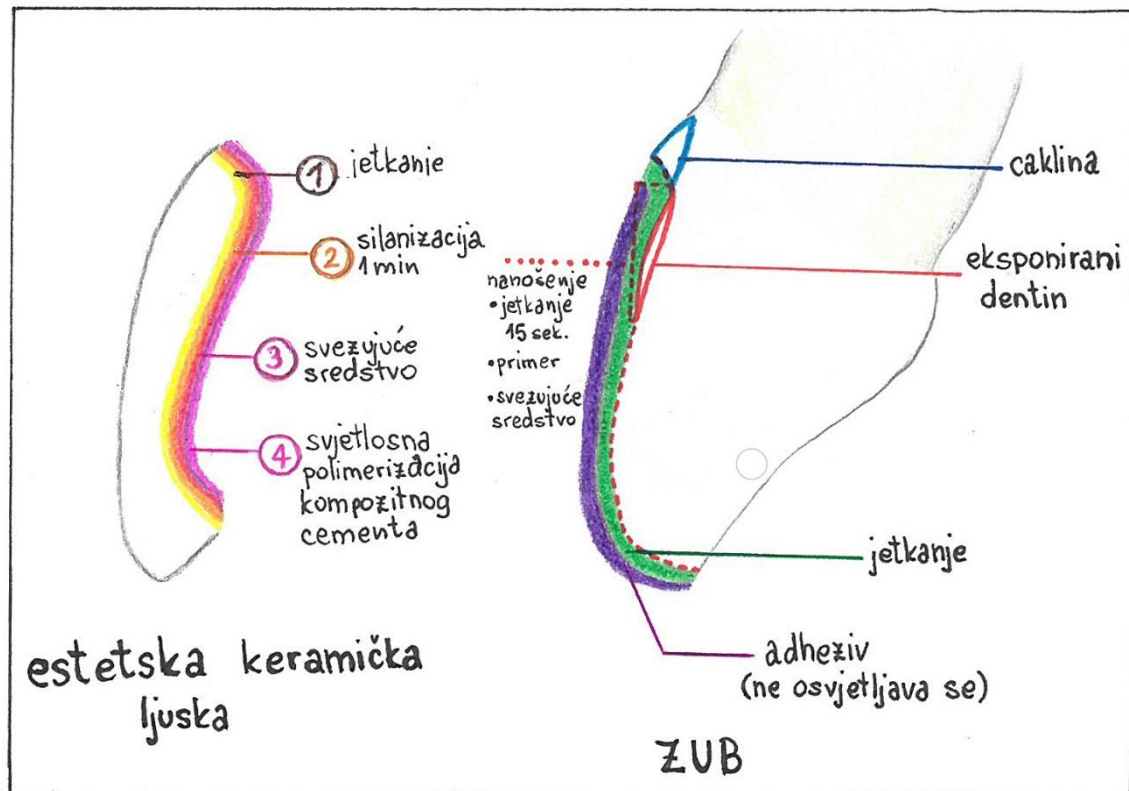 1 jetkanje
2 silanizacija
1 min
3 svezujuće
sredstvo
4 svjetlosna
polimerizacija
kompozitnog
cementa
estetska keramička
ljuska
nanošenje
• jetkanje
15 sek.
• primer
• svezujuće
sredstvo
caklina
eksponirani
dentin
jetkanje
adheziv
(ne osvjetljava se)
ZUB